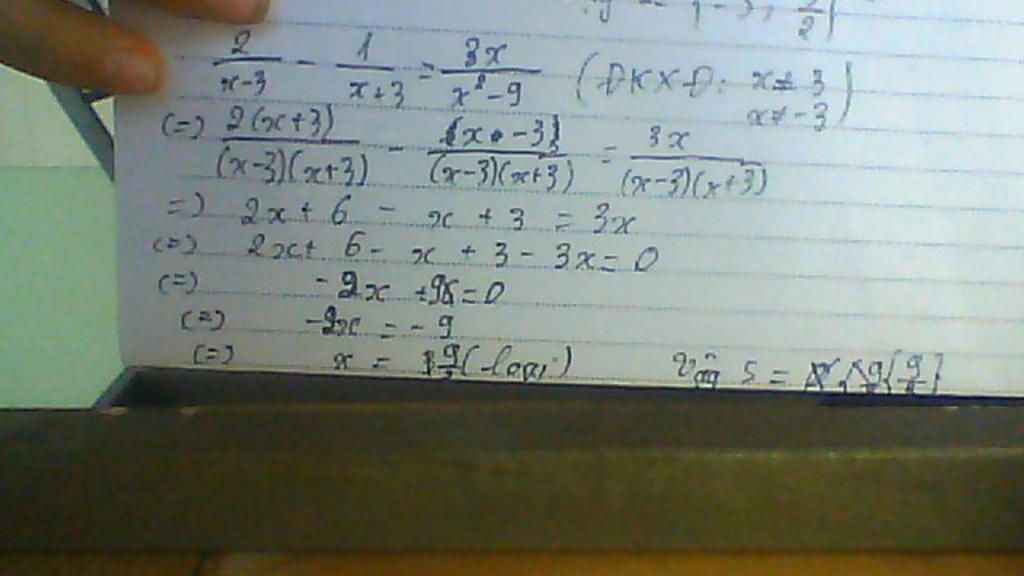 2/(x-3) - 1/(x+3) = 3x/(x²-9) (ĐKXĐ: x ≠ 3
x ≠ -3)
(=) 2(x+3)/((x-3)(x+3)) - (x-3)/((x-3)(x+3)) = 3x/((x-3)(x+3))
=) 2x + 6 - x + 3 = 3x
(=) 2x + 6 - x + 3 - 3x = 0
(=) -2x + 9 = 0
(=) -2x = -9
(=) x = 9/2 Vậy S = {9/2}